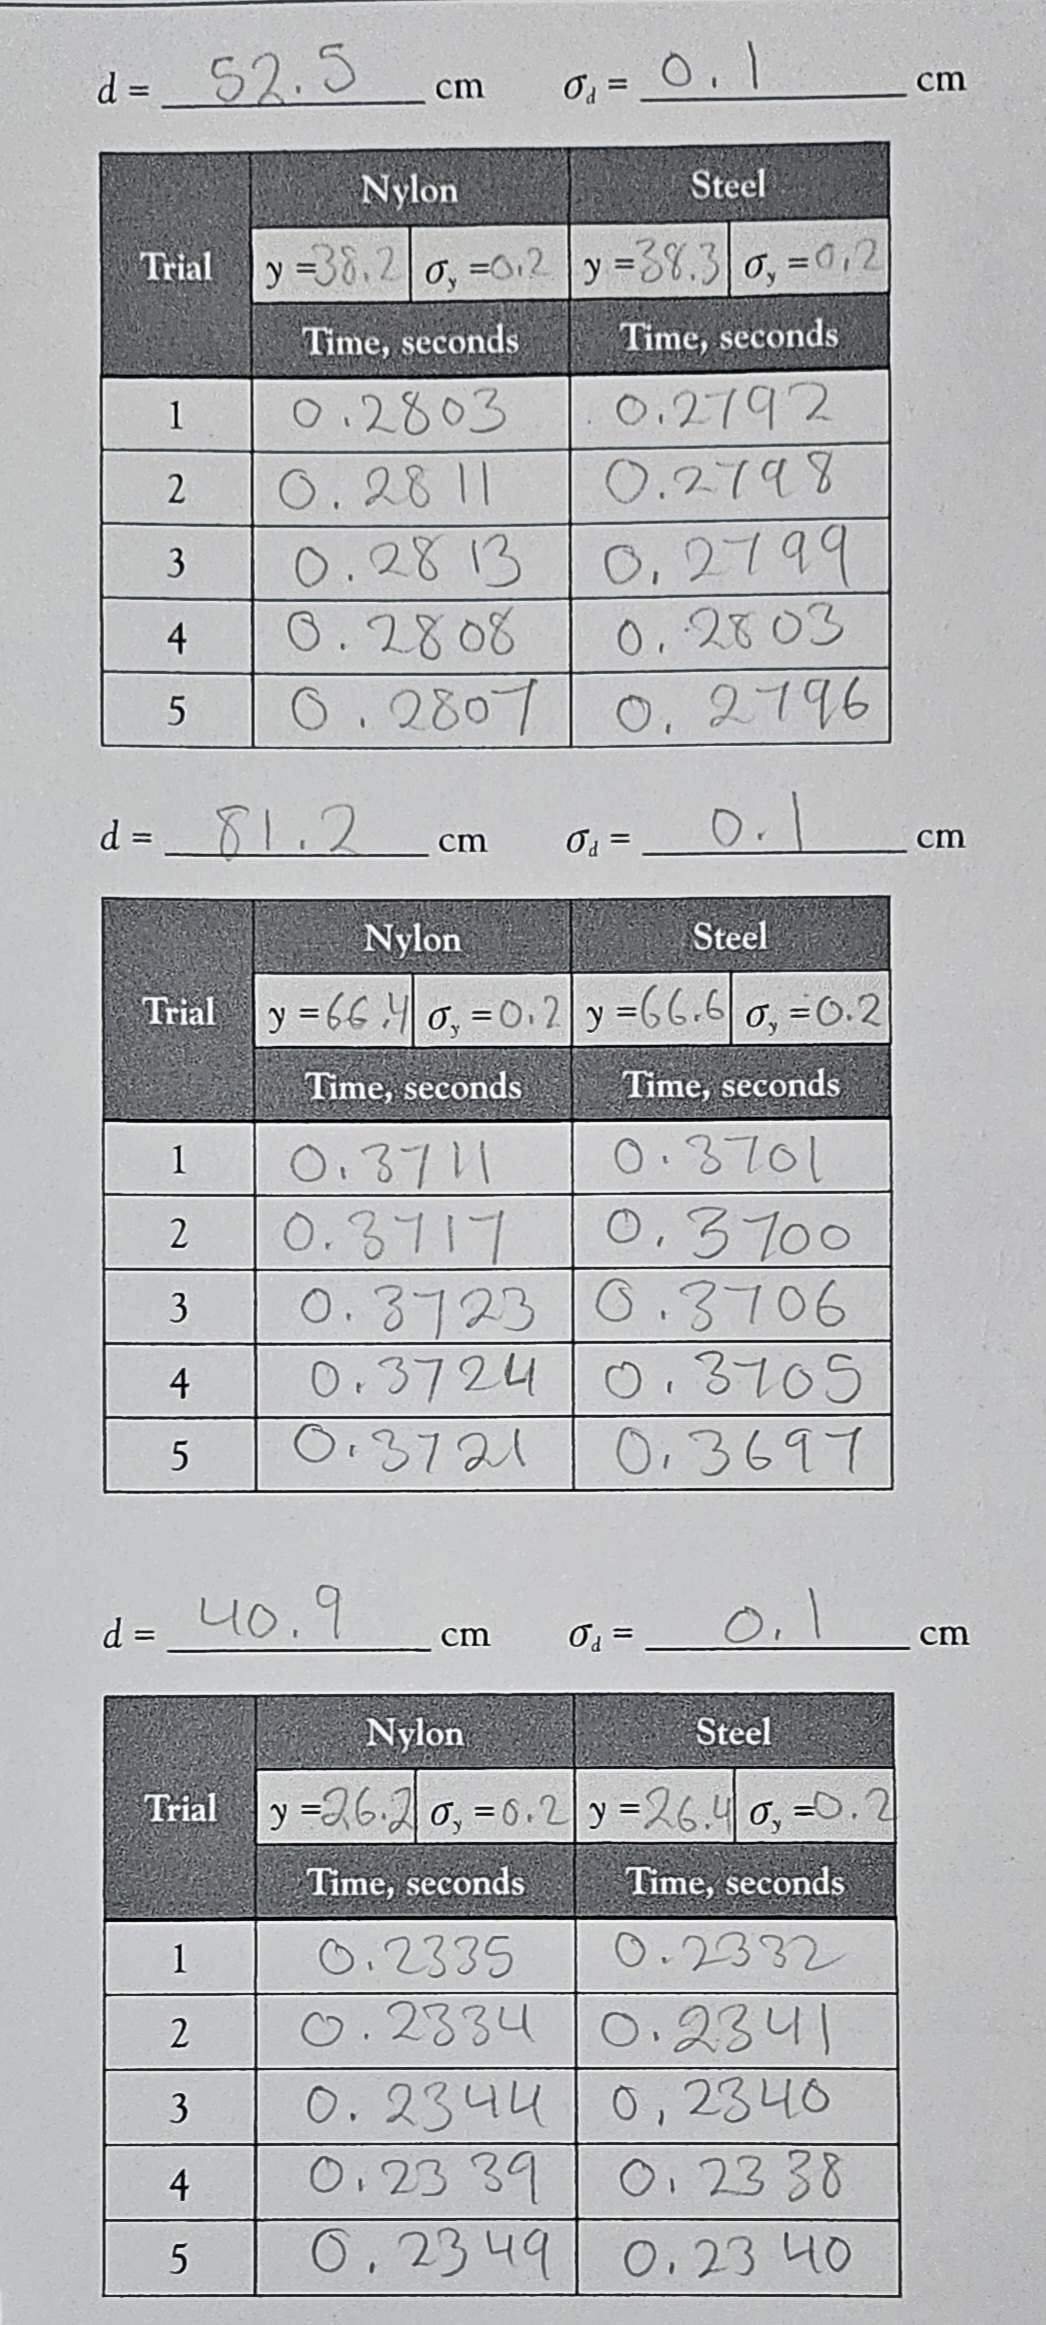 d = 52.5 cm σd = 0.1 cm
Nylon Steel
Trial y = 38.2 σy = 0.2 y = 38.3 σy = 0.2
Time, seconds Time, seconds
1 0.2803 0.2792
2 0.2811 0.2798
3 0.2813 0.2799
4 0.2808 0.2803
5 0.2807 0.2796
d = 81.2 cm σd = 0.1 cm
Nylon Steel
Trial y = 66.4 σy = 0.2 y = 66.6 σy = 0.2
Time, seconds Time, seconds
1 0.3711 0.3701
2 0.3717 0.3700
3 0.3723 0.3706
4 0.3724 0.3705
5 0.3721 0.3697
d = 40.9 cm σd = 0.1 cm
Nylon Steel
Trial y = 26.2 σy = 0.2 y = 26.4 σy = 0.2
Time, seconds Time, seconds
1 0.2335 0.2332
2 0.2334 0.2341
3 0.2344 0.2340
4 0.2339 0.2338
5 0.2349 0.2340